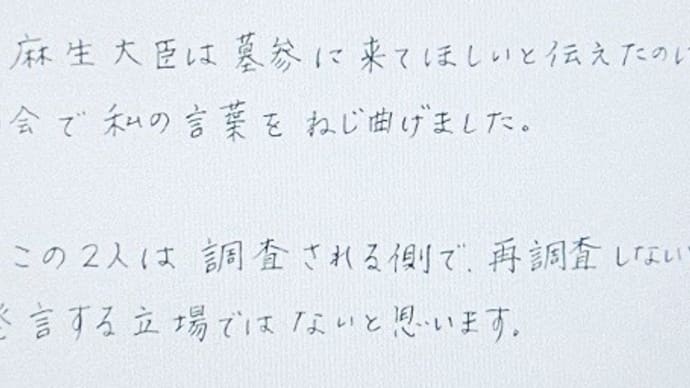 麻生大臣は墓参に来てほしいと伝えたのに
会で私の言葉をねじ曲げました。
この2人は調査される側で、再調査しない
発言する立場ではないと思います。